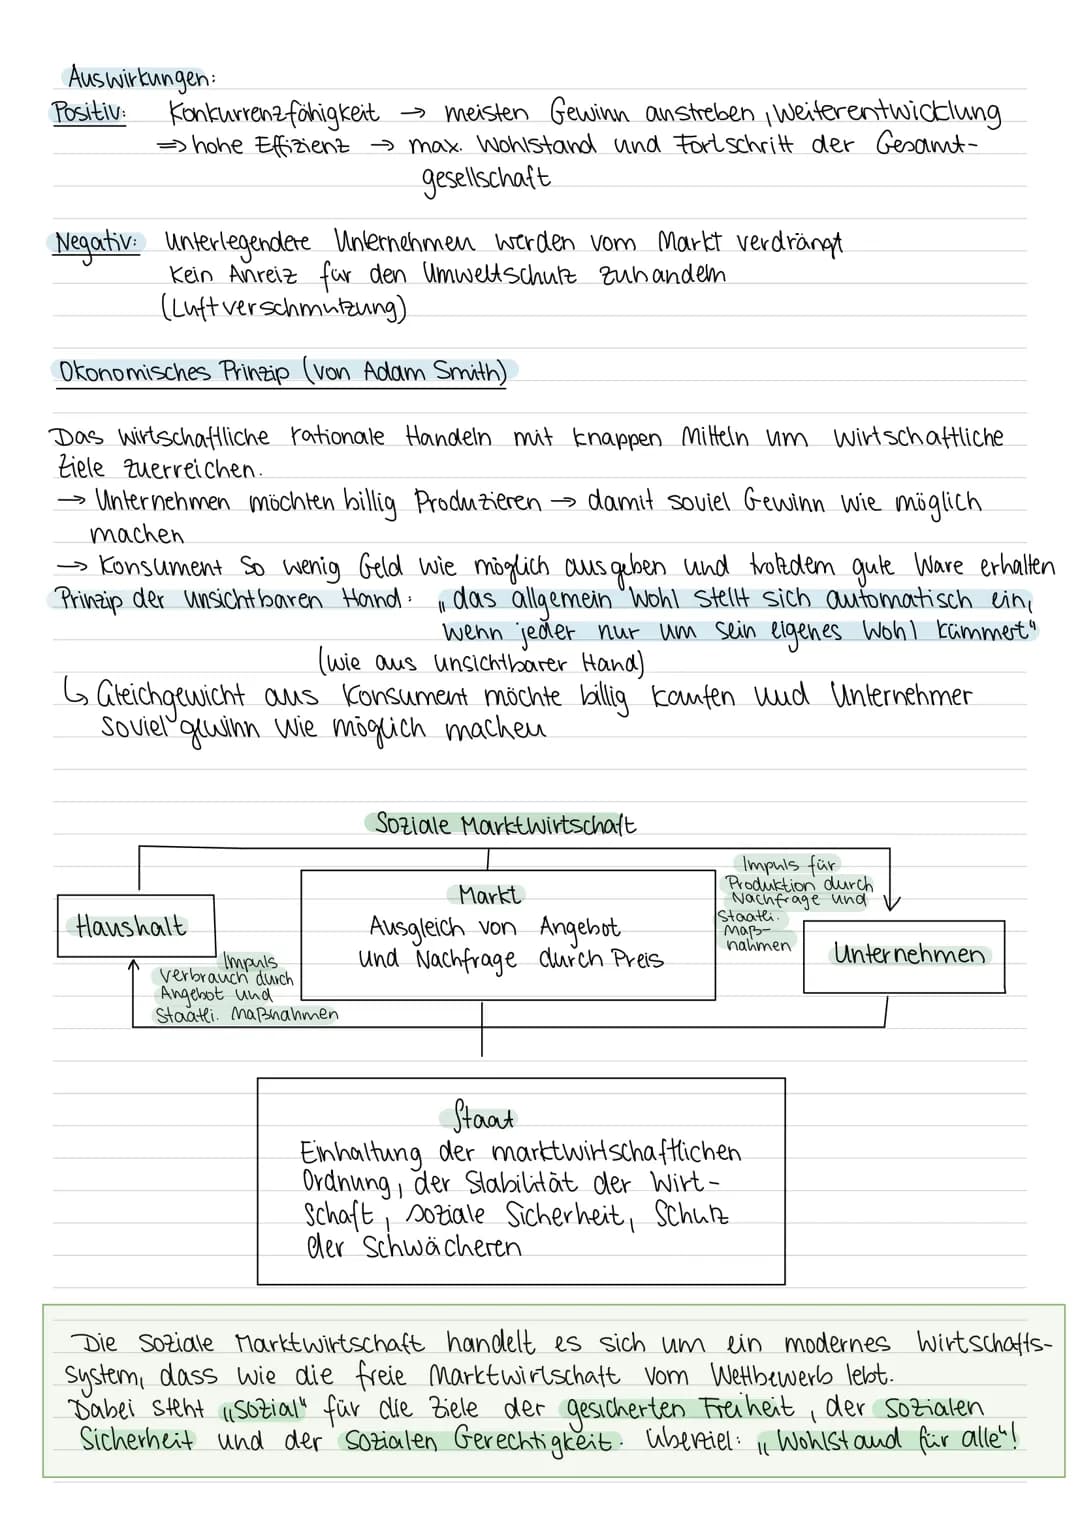 Auswirkungen:
Positiv: Konkurrenzfähigkeit → meisten Gewinn anstreben, Weiterentwicklung
⇒ hohe Effizienz → max. Wohlstand und Fortschritt der Gesamt-
gesellschaft
Negativ: Unterlegendere Unternehmen werden vom Markt verdrängt
Kein Anreiz für den Umweltschutz zuhandeln
(Luftverschmutzung)
Ökonomisches Prinzip (von Adam Smith)
Das wirtschaftliche rationale Handeln mit knappen Mitteln um wirtschaftliche
Ziele zuerreichen.
→ Unternehmen möchten billig Produzieren → damit soviel Gewinn wie möglich
machen
→ Konsument So wenig Geld wie möglich ausgeben und trotzdem gute Ware erhalten
Prinzip der unsichtbaren Hand: „das allgemein Wohl stellt sich automatisch ein,
wenn jeder nur um sein eigenes Wohl kümmert“
(wie aus unsichtbarer Hand)
↳ Gleichgewicht aus Konsument möchte billig kaufen und Unternehmer
Soviel gewinn wie möglich machen
Soziale Marktwirtschaft
Haushalt
Impuls
Verbrauch durch
Angebot und
Staatli. Maßnahmen
Markt
Ausgleich von Angebot
und Nachfrage durch Preis
Impuls für
Produktion durch
Nachfrage und
Staatli.
Maß-
nahmen
Unternehmen
Staat
Einhaltung der marktwirtschaftlichen
Ordnung, der Stabilität der Wirt-
schaft, soziale Sicherheit, Schutz
der Schwächeren
Die Soziale Marktwirtschaft handelt es sich um ein modernes Wirtschafts-
system, dass wie die freie Marktwirtschaft vom Wettbewerb lebt.
Dabei steht „Sozial“ für die Ziele der gesicherten Freiheit, der Sozialen
Sicherheit und der Sozialen Gerechtigkeit. Überziel: „Wohlstand für alle“!